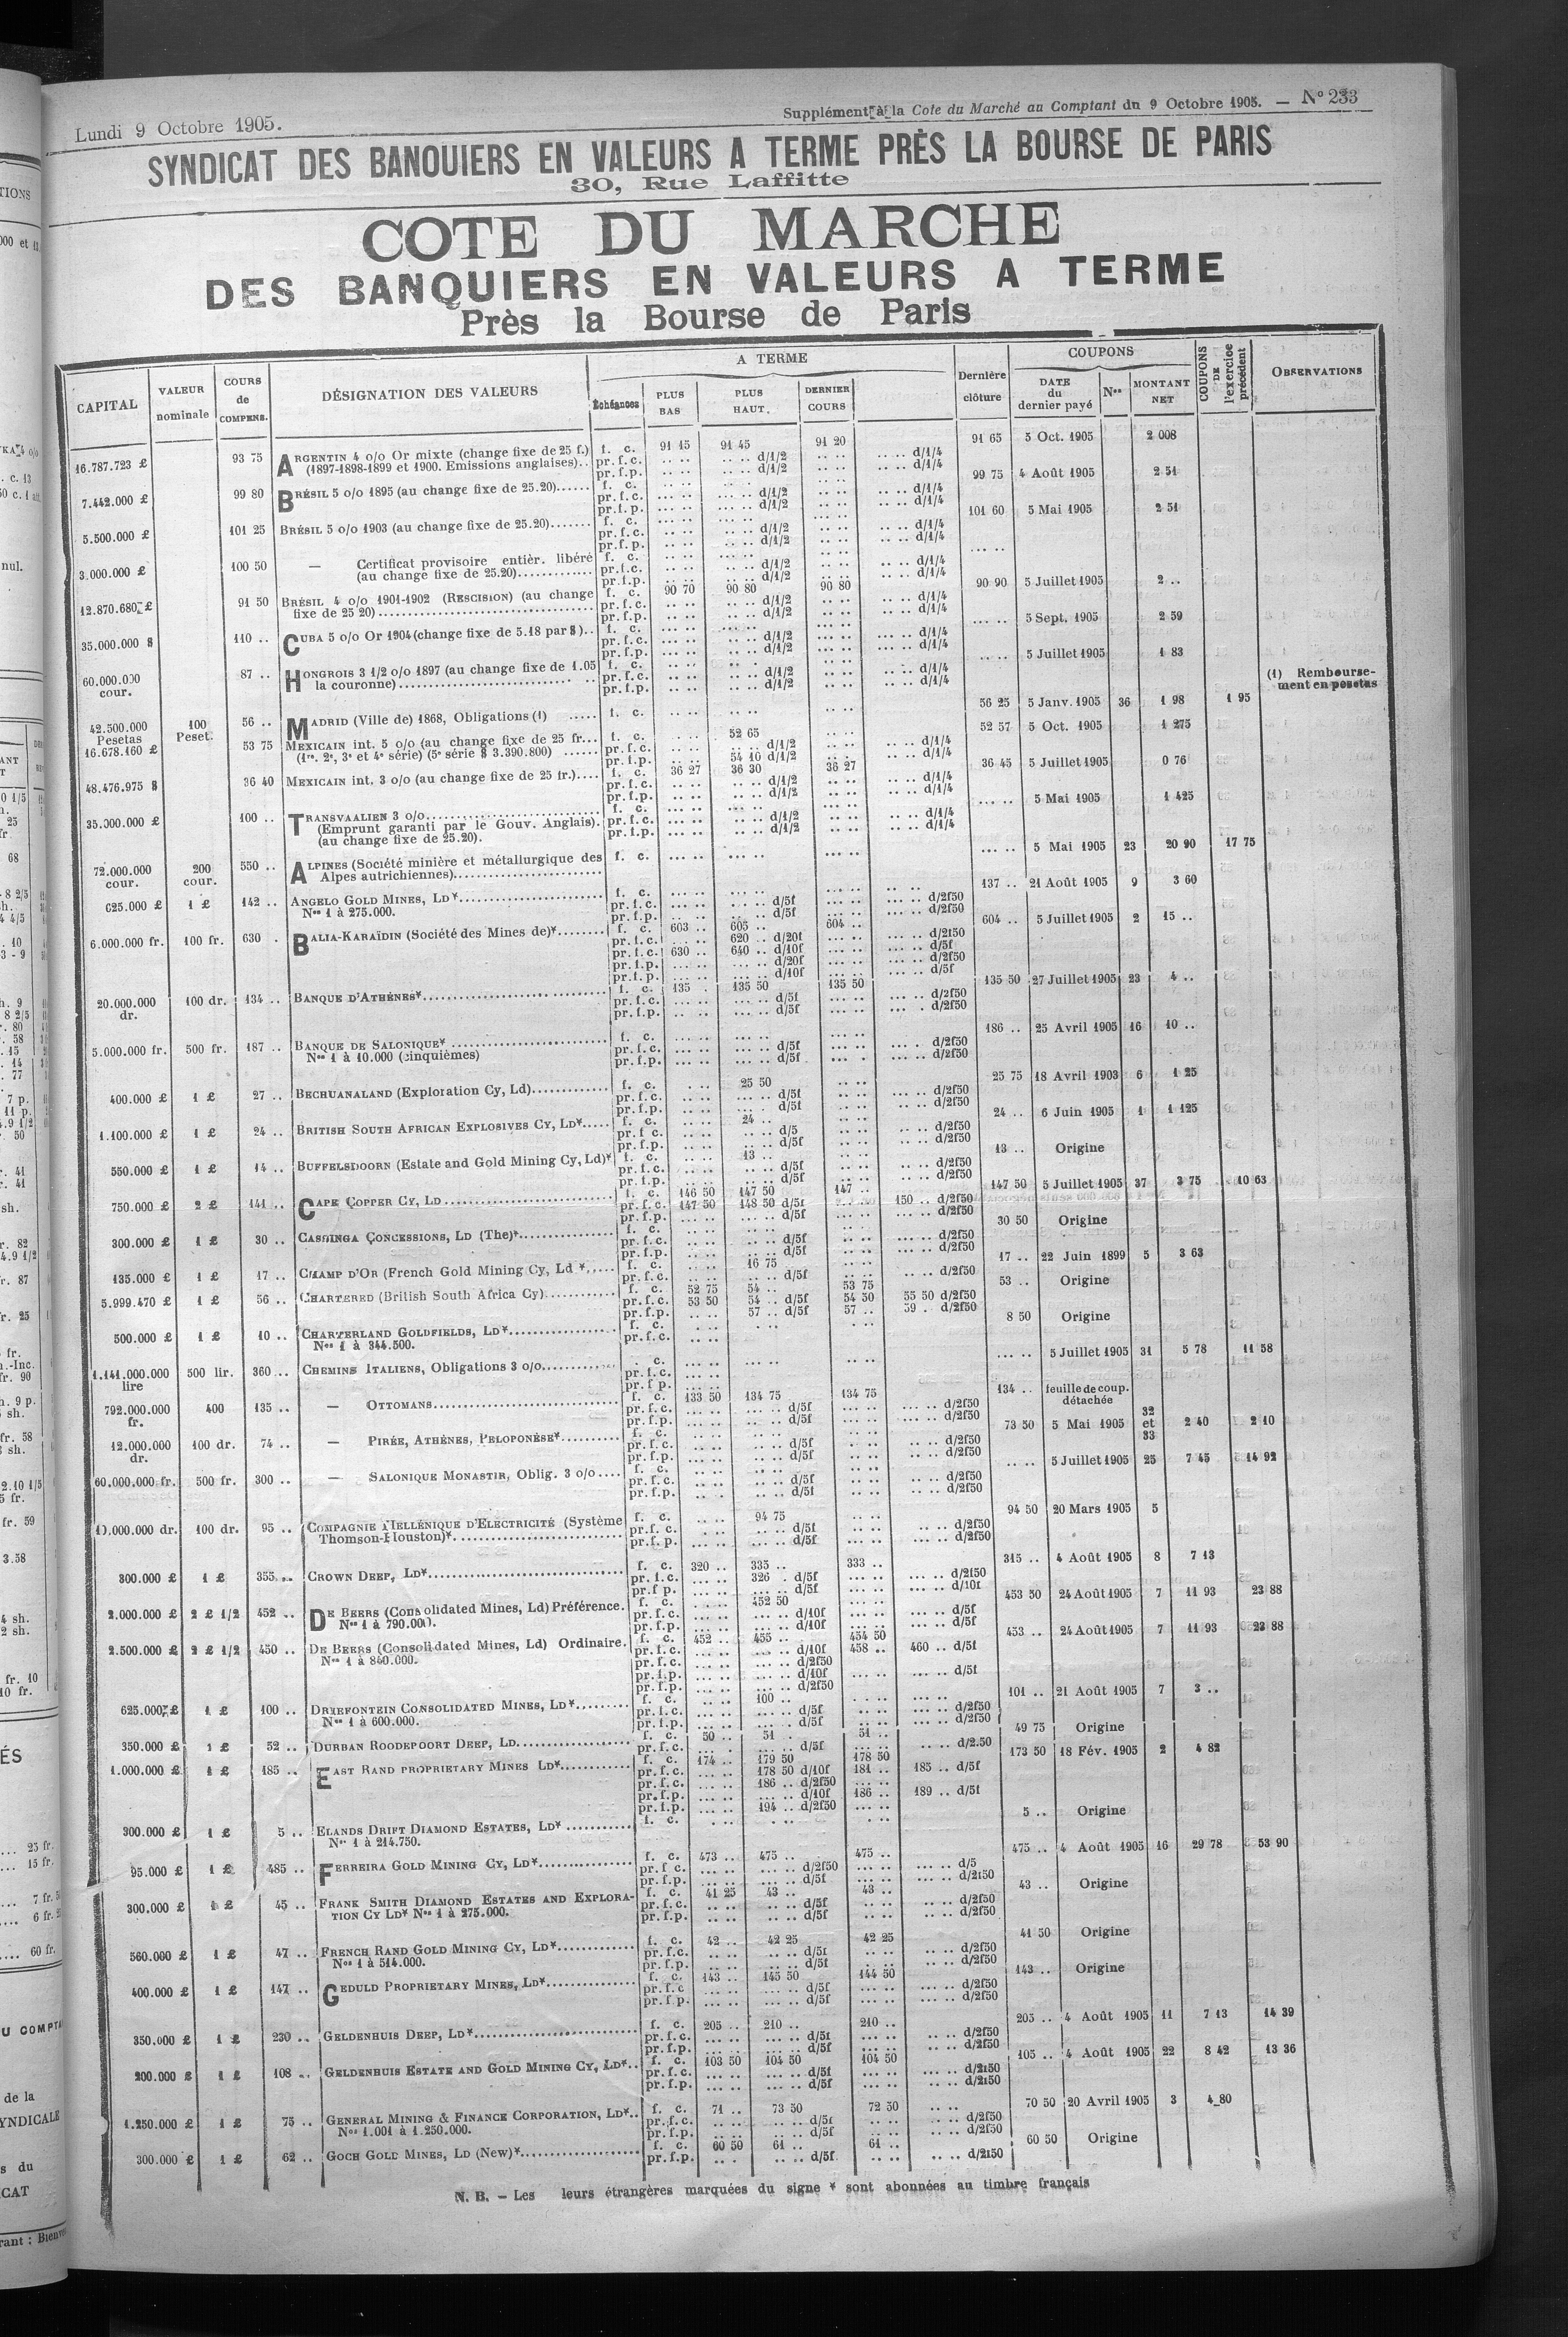 Lundi 9 Octobre 1905.
Supplément à la Cote du Marché au Comptant du 9 Octobre 1905. — N° 233
SYNDICAT DES BANQUIERS EN VALEURS A TERME PRÈS LA BOURSE DE PARIS
30, Rue Laffitte
COTE DU MARCHE
DES BANQUIERS EN VALEURS A TERME
Près la Bourse de Paris
CAPITAL | VALEUR nominale | COURS de COMPENS. | DÉSIGNATION DES VALEURS | A TERME | Échéances | PLUS BAS | PLUS HAUT. | DERNIER COURS | Dernière clôture | COUPONS | DATE du dernier payé | Nos | MONTANT NET | COUPONS DE l'exercice précédent | OBSERVATIONS
16.787.723 £ 93 75 ARGENTIN 4 o/o Or mixte (change fixe de 25 f.) f. c. 91 15 91 45 91 20 91 65 5 Oct. 1905 2 008
(1897-1898-1899 et 1900. Emissions anglaises).. pr.f.c. d/1/2 d/1/4
pr.f.p. d/1/2 d/1/4
7.442.000 £ 99 80 BRÉSIL 5 o/o 1895 (au change fixe de 25.20)...... f. c. 99 75 4 Août 1905 2 51
pr.f.c. d/1/2 d/1/4
pr.f.p. d/1/2 d/1/4
5.500.000 £ 101 25 BRÉSIL 5 o/o 1903 (au change fixe de 25.20)....... f. c. 101 60 5 Mai 1905 2 51
pr.f.c. d/1/2 d/1/4
pr.f.p. d/1/2 d/1/4
3.000.000 £ 100 50 — Certificat provisoire entièr. libéré f. c.
(au change fixe de 25.20)............. pr.f.c. d/1/2 d/1/4
pr.f.p. d/1/2 d/1/4
12.870.680 £ 91 50 BRÉSIL 4 o/o 1901-1902 (RESCISION) (au change f. c. 90 70 90 80 90 80 90 90 5 Juillet 1905 2 ..
fixe de 25 20) pr.f.c. d/1/2 d/1/4
pr.f.p. d/1/2 d/1/4
35.000.000 $ 110 .. CUBA 5 o/o Or 1904 (change fixe de 5.18 par $).. f. c. 5 Sept. 1905 2 59
pr.f.c. d/1/2 d/1/4
pr.f.p. d/1/2 d/1/4
60.000.000 cour. 87 .. HONGROIS 3 1/2 o/o 1897 (au change fixe de 1.05 f. c. 5 Juillet 1905 1 83
la couronne) pr.f.c. d/1/2 d/1/4
pr.f.p. d/1/2 d/1/4
(1) Rembourse-
ment en pesetas
42.500.000 Pesetas 100 Peset. 56 .. MADRID (Ville de) 1868, Obligations (1) ..... f. c. 56 25 5 Janv. 1905 36 1 98 1 95
16.678.160 £ 53 75 MEXICAIN int. 5 o/o (au change fixe de 25 fr... f. c. 52 65 52 57 5 Oct. 1905 1 275
(1re, 2e, 3e et 4e série) (5e série $ 3.390.800) ...... pr.f.c. d/1/2 d/1/4
pr.f.p. 54 10 d/1/2 d/1/4
48.476.975 $ 36 40 MEXICAIN int. 3 o/o (au change fixe de 25 fr.).... f. c. 36 27 36 30 36 27 36 45 5 Juillet 1905 0 76
pr.f.c. d/1/2 d/1/4
pr.f.p. d/1/2 d/1/4
35.000.000 £ 100 .. TRANSVAALIEN 3 o/o f. c. 5 Mai 1905 1 425
(Emprunt garanti par le Gouv. Anglais). pr.f.c. d/1/2 d/1/4
(au change fixe de 25.20). pr.f.p. d/1/2 d/1/4
72.000.000 cour. 200 cour. 550 .. ALPINES (Société minière et métallurgique des f. c. 5 Mai 1905 23 20 90 17 75
Alpes autrichiennes)
625.000 £ 1 £ 142 .. ANGELO GOLD MINES, LD* f. c. 137 .. 21 Août 1905 9 3 60
Nos 1 à 275.000. pr.f.c. d/5f d/2f50
pr.f.p. d/5f d/2f50
6.000.000 fr. 100 fr. 630 . BALIA-KARAÏDIN (Société des Mines de)* f. c. 603 .. 605 .. 604 .. 604 .. 5 Juillet 1905 2 15 ..
pr.f.c. 620 .. d/20f d/2f50
pr.f.c. 630 .. 640 .. d/10f d/5f
pr.f.p. d/20f d/2f50
pr.f.p. d/10f d/5f
20.000.000 dr. 100 dr. 134 .. BANQUE D'ATHÈNES* f. c. 135 . 135 50 135 50 135 50 27 Juillet 1905 23 4 ..
pr.f.c. d/5f d/2f50
pr.f.p. d/5f d/2f50
5.000.000 fr. 500 fr. 187 .. BANQUE DE SALONIQUE* f. c. 186 .. 25 Avril 1905 16 10 ..
Nos 1 à 10.000 (cinquièmes) pr.f.c. d/5f d/2f50
pr.f.p. d/5f d/2f50
400.000 £ 1 £ 27 .. BECHUANALAND (Exploration Cy, Ld) f. c. 25 50 25 75 18 Avril 1903 6 1 25
pr.f.c. d/5f d/2f50
pr.f.p. d/5f d/2f50
1.100.000 £ 1 £ 24 .. BRITISH SOUTH AFRICAN EXPLOSIVES CY, LD* f. c. 24 .. 24 .. 6 Juin 1905 1 1 125
pr.f.c. d/5 d/2f50
pr.f.p. d/5f d/2f50
550.000 £ 1 £ 14 .. BUFFELSDOORN (Estate and Gold Mining Cy, Ld)* f. c. 13 .. 13 .. Origine
pr.f.c. d/5f d/2f50
pr.f.p. d/5f d/2f50
750.000 £ 2 £ 141 .. CAPE COPPER CY, LD f. c. 146 50 147 50 147 .. 147 50 5 Juillet 1905 37 3 75 10 63
pr.f.c. 147 50 148 50 d/5f 150 .. d/2f50
pr.f.p. d/5f d/2f50
300.000 £ 1 £ 30 .. CASSINGA CONCESSIONS, LD (The)* f. c. 30 50 Origine
pr.f.c. d/5f d/2f50
pr.f.p. d/5f d/2f50
135.000 £ 1 £ 17 .. CHAMP D'OR (French Gold Mining Cy, Ld *, f. c. 16 75 17 .. 22 Juin 1899 5 3 63
pr.f.c. d/5f d/2f50
5.999.470 £ 1 £ 56 .. CHARTERED (British South Africa Cy) f. c. 52 75 54 .. 53 75 53 .. Origine
pr.f.c. 53 50 54 .. d/5f 54 50 55 50 d/2f50
pr.f.p. 57 .. d/5f 57 .. 59 . d/2f50
500.000 £ 1 £ 10 .. CHARTERLAND GOLDFIELDS, LD* f. c. 8 50 Origine
Nos 1 à 344.500. pr.f.c.
1.141.000.000 lire 500 lir. 360 .. CHEMINS ITALIENS, Obligations 3 o/o . c. 5 Juillet 1905 31 5 78 11 58
pr.f.c.
pr.f p.
792.000.000 fr. 400 135 .. — OTTOMANS f. c. 133 50 134 75 134 75 134 .. feuille de coup. détachée
pr.f.c. d/5f d/2f50
pr.f.p. d/5f d/2f50
12.000.000 dr. 100 dr. 74 .. — PIRÉE, ATHÈNES, PELOPONÈSE* f. c. 73 50 5 Mai 1905 32 et 33 2 40 2 10
pr.f.c. d/5f d/2f50
pr.f.p. d/5f d/2f50
60.000.000 fr. 500 fr. 300 .. — SALONIQUE MONASTIR, Oblig. 3 o/o f. c. 5 Juillet 1905 25 7 45 14 92
pr.f.c. d/5f d/2f50
pr.f.p. d/5f d/2f50
10.000.000 dr. 100 dr. 95 .. COMPAGNIE HELLÉNIQUE D'ELECTRICITÉ (Système f. c. 94 75 94 50 20 Mars 1905 5
Thomson-Houston)* pr.f.c. d/5f d/2f50
pr.f.p. d/5f d/2f50
300.000 £ 1 £ 355 .. CROWN DEEP, LD* f. c. 320 .. 335 .. 333 .. 315 .. 4 Août 1905 8 7 13
pr.f.c. 326 . d/5f d/2f50
pr.f p. d/5f d/10f
2.000.000 £ 2 £ 1/2 452 .. DE BEERS (Consolidated Mines, Ld) Préférence. f. c. 452 50 453 50 24 Août 1905 7 11 93 23 88
Nos 1 à 790.000. pr.f.c. d/10f d/5f
pr.f.p. d/10f d/5f
2.500.000 £ 2 £ 1/2 450 .. DE BEERS (Consolidated Mines, Ld) Ordinaire. f. c. 452 .. 455 .. 454 50 453 .. 24 Août 1905 7 11 93 23 88
Nos 1 à 840.000. pr.f.c. d/10f 458 .. 460 .. d/5f
pr.f.c. d/2f50
pr.f.p. d/10f d/5f
pr.f.p. d/2f50
625.000 £ 1 £ 100 .. DRIEFONTEIN CONSOLIDATED MINES, LD* f. c. 100 .. 101 .. 21 Août 1905 7 3 ..
Nos 1 à 600.000. pr.f.c. d/5f d/2f50
pr.f.p. d/5f d/2f50
350.000 £ 1 £ 52 .. DURBAN ROODEPOORT DEEP, LD f. c. 50 .. 51 . 51 .. 49 75 Origine
pr.f.c. d/5f d/2.50
1.000.000 £ 1 £ 185 .. EAST RAND PROPRIETARY MINES LD* f. c. 174 .. 179 50 178 50 173 50 18 Fév. 1905 2 4 82
pr.f.c. 178 50 d/10f 181 .. 185 .. d/5f
pr.f.c. 186 .. d/2f50
pr.f.p. d/10f 186 .. 189 .. d/5f
pr.f.p. 194 .. d/2f50
300.000 £ 1 £ 5 .. ELANDS DRIFT DIAMOND ESTATES, LD* f. c. 5 .. Origine
Nos 1 à 214.750.
95.000 £ 1 £ 485 .. FERREIRA GOLD MINING CY, LD* f. c. 473 .. 475 .. 475 .. 475 .. 4 Août 1905 16 29 78 53 90
pr.f c. d/2f50 d/5
pr.f.p. d/5f d/2f50
300.000 £ 1 £ 45 .. FRANK SMITH DIAMOND ESTATES AND EXPLORA- f. c. 41 25 43 .. 43 .. 43 .. Origine
TION CY LD* Nos 1 à 275.000. pr.f.c. d/5f d/2f50
pr.f.p. d/5f d/2f50
560.000 £ 1 £ 47 .. FRENCH RAND GOLD MINING CY, LD* f. c. 42 .. 42 25 42 25 41 50 Origine
Nos 1 à 514.000. pr.f.c. d/5f d/2f50
pr.f.p. d/5f d/2f50
400.000 £ 1 £ 147 .. GEDULD PROPRIETARY MINES, LD* f. c. 143 .. 145 50 144 50 143 .. Origine
pr.f.c d/5f d/2f50
pr.f.p. d/5f d/2f50
350.000 £ 1 £ 230 .. GELDENHUIS DEEP, LD* f. c. 205 .. 210 .. 210 .. 205 .. 4 Août 1905 11 7 13 14 39
pr.f.c. d/5f d/2f50
pr.f.p. d/5f d/2f50
200.000 £ 1 £ 108 .. GELDENHUIS ESTATE AND GOLD MINING CY, LD*.. f. c. 103 50 104 50 104 50 105 .. 4 Août 1905 22 8 42 13 36
pr.f.c. d/5f d/2f50
pr.f.p. d/5f d/2f50
1.250.000 £ 1 £ 75 .. GENERAL MINING & FINANCE CORPORATION, LD*.. f. c. 71 .. 73 50 72 50 70 50 20 Avril 1905 3 4 80
Nos 1.001 à 1.250.000. pr.f.c. d/5f d/2f50
pr.f.p. d/5f d/2f50
300.000 £ 1 £ 62 .. GOCH GOLD MINES, LD (New)* f. c. 60 50 61 .. 61 .. 60 50 Origine
pr.f.p. d/5f d/2f50
N. B. — Les leurs étrangères marquées du signe * sont abonnées au timbre français